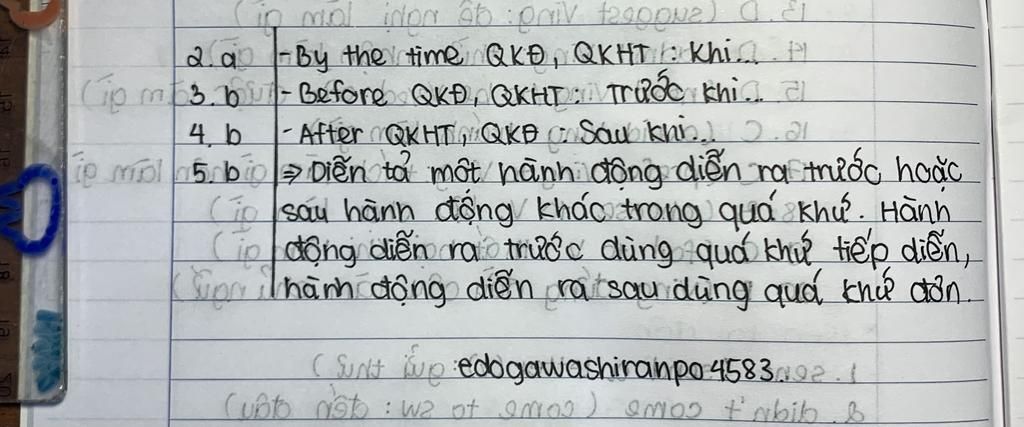 2. a - By the time QKĐ, QKHT: khi...
3. b - Before QKĐ, QKHT: Trước khi...
4. b - After QKHT, QKĐ: Sau khi...
5. b ⇒ Diễn tả một hành động diễn ra trước hoặc
sau hành động khác trong quá khứ. Hành
động diễn ra trước dùng quá khứ tiếp diễn,
hành động diễn ra sau dùng quá khứ đơn.
edogawashiranpo4583